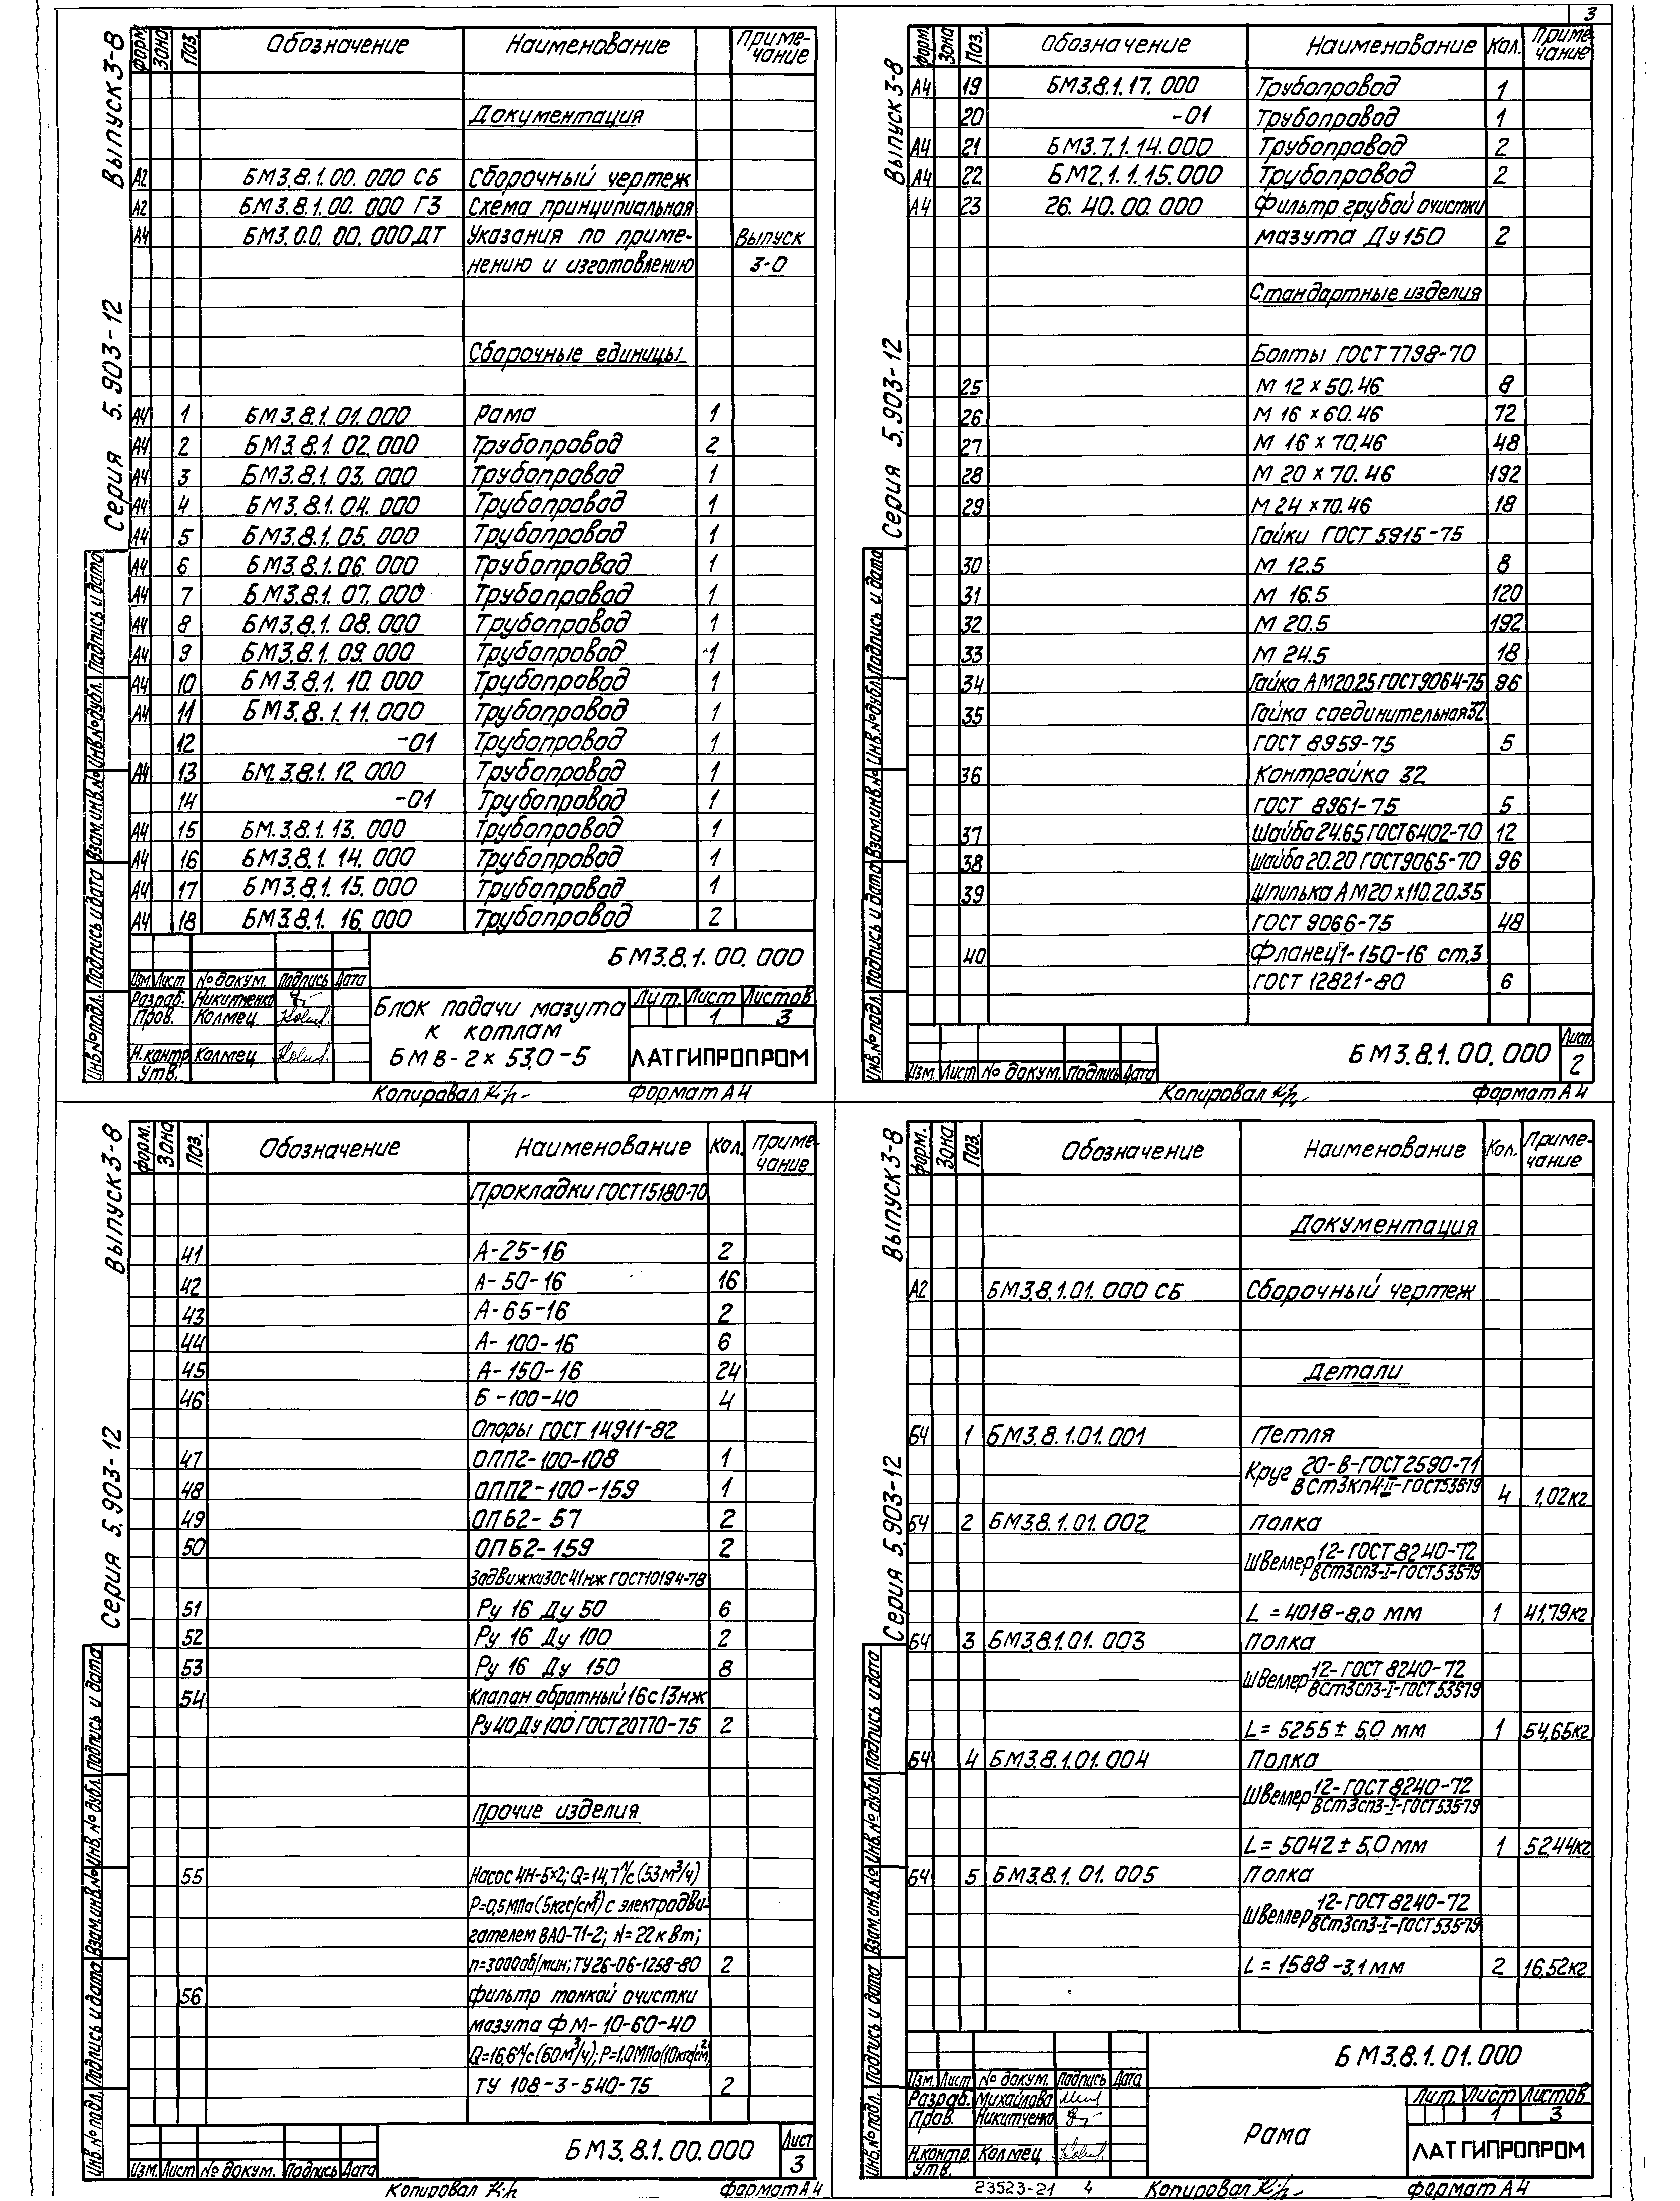 3
Выпуск 3-8
Серия 5.903-12
Форм. Зона Поз. Обозначение Наименование Приме-
чание
Документация
А2 БМ3.8.1.00.000 СБ Сборочный чертеж
А2 БМ3.8.1.00.000 Г3 Схема принципиальная
А4 БМ3.0.0.00.000 ДТ Указания по приме- Выпуск
нению и изготовлению 3-0
Сборочные единицы
А4 1 БМ3.8.1.01.000 Рама 1
А4 2 БМ3.8.1.02.000 Трубопровод 2
А4 3 БМ3.8.1.03.000 Трубопровод 1
А4 4 БМ3.8.1.04.000 Трубопровод 1
А4 5 БМ3.8.1.05.000 Трубопровод 1
А4 6 БМ3.8.1.06.000 Трубопровод 1
А4 7 БМ3.8.1.07.000 Трубопровод 1
А4 8 БМ3.8.1.08.000 Трубопровод 1
А4 9 БМ3.8.1.09.000 Трубопровод 1
А4 10 БМ3.8.1.10.000 Трубопровод 1
А4 11 БМ3.8.1.11.000 Трубопровод 1
12 -01 Трубопровод 1
А4 13 БМ.3.8.1.12.000 Трубопровод 1
14 -01 Трубопровод 1
А4 15 БМ.3.8.1.13.000 Трубопровод 1
А4 16 БМ3.8.1.14.000 Трубопровод 1
А4 17 БМ3.8.1.15.000 Трубопровод 1
А4 18 БМ3.8.1.16.000 Трубопровод 2
Инв.№ подл. Подпись и дата Взам.инв.№ Инв.№ дубл. Подпись и дата
БМ3.8.1.00.000
Изм. Лист № докум. Подпись Дата
Разраб. Никитченко
Пров. Колмец
Н.контр. Колмец
Утв.
Блок подачи мазута
к котлам
БМВ-2×53,0-5
Лит. Лист Листов
1 3
ЛАТГИПРОПРОМ
Копировал Формат А4
Выпуск 3-8
Серия 5.903-12
Форм. Зона Поз. Обозначение Наименование Кол. Приме-
чание
А4 19 БМ3.8.1.17.000 Трубопровод 1
20 -01 Трубопровод 1
А4 21 БМ3.7.1.14.000 Трубопровод 2
А4 22 БМ2.1.1.15.000 Трубопровод 2
А4 23 26.40.00.000 Фильтр грубой очистки
мазута Ду 150 2
Стандартные изделия
Болты ГОСТ 7798-70
25 М 12×50.46 8
26 М 16×60.46 72
27 М 16×70.46 48
28 М 20×70.46 192
29 М 24×70.46 18
Гайки ГОСТ 5915-75
30 М 12.5 8
31 М 16.5 120
32 М 20.5 192
33 М 24.5 18
34 Гайка АМ20.25 ГОСТ 9064-75 96
35 Гайка соединительная 32
ГОСТ 8959-75 5
36 Контргайка 32
ГОСТ 8961-75 5
37 Шайба 24.65 ГОСТ 6402-70 12
38 Шайба 20.20 ГОСТ 9065-70 96
39 Шпилька АМ20×110.20.35
ГОСТ 9066-75 48
40 Фланец 1-150-16 ст.3
ГОСТ 12821-80 6
Инв.№ подл. Подпись и дата Взам.инв.№ Инв.№ дубл. Подпись и дата
Изм. Лист № докум. Подпись Дата
БМ3.8.1.00.000
Лист
2
Копировал Формат А4
Выпуск 3-8
Серия 5.903-12
Форм. Зона Поз. Обозначение Наименование Кол. Приме-
чание
Прокладки ГОСТ 15180-70
41 А-25-16 2
42 А-50-16 16
43 А-65-16 2
44 А-100-16 6
45 А-150-16 24
46 Б-100-40 4
Опоры ГОСТ 14911-82
47 ОПП2-100-108 1
48 ОПП2-100-159 1
49 ОПБ2-57 2
50 ОПБ2-159 2
Задвижки 30с41нж ГОСТ 10194-78
51 Ру 16 Ду 50 6
52 Ру 16 Ду 100 2
53 Ру 16 Ду 150 8
54 Клапан обратный 16с13нж
Ру 40 Ду 100 ГОСТ 20770-75 2
Прочие изделия
55 Насос 4Н-5×2; Q=14,7 л/с (53 м³/ч)
Р=0,5 МПа (5 кгс/см²) с электродви-
гателем ВАО-71-2; N=22 кВт;
n=3000 об/мин; ТУ 26-06-1258-80 2
56 Фильтр тонкой очистки
мазута ФМ-10-60-40
Q=16,6 л/с (60 м³/ч); Р=1,0 МПа (10 кгс/см²)
ТУ 108-3-540-75 2
Инв.№ подл. Подпись и дата Взам.инв.№ Инв.№ дубл. Подпись и дата
Изм. Лист № докум. Подпись Дата
БМ3.8.1.00.000
Лист
3
Копировал Формат А4
Выпуск 3-8
Серия 5.903-12
Форм. Зона Поз. Обозначение Наименование Кол. Приме-
чание
Документация
А2 БМ3.8.1.01.000 СБ Сборочный чертеж
Детали
БЧ 1 БМ3.8.1.01.001 Петля
Круг 20-В-ГОСТ 2590-71
ВСт3кп4-II-ГОСТ 535-79 4 1,02кг
БЧ 2 БМ3.8.1.01.002 Полка
Швеллер 12-ГОСТ 8240-72
ВСт3сп3-I-ГОСТ 535-79
L=4018-8,0 мм 1 41,79кг
БЧ 3 БМ3.8.1.01.003 Полка
Швеллер 12-ГОСТ 8240-72
ВСт3сп3-I-ГОСТ 535-79
L=5255±5,0 мм 1 54,65кг
БЧ 4 БМ3.8.1.01.004 Полка
Швеллер 12-ГОСТ 8240-72
ВСт3сп3-I-ГОСТ 535-79
L=5042±5,0 мм 1 52,44кг
БЧ 5 БМ3.8.1.01.005 Полка
Швеллер 12-ГОСТ 8240-72
ВСт3сп3-I-ГОСТ 535-79
L=1588-3,1 мм 2 16,52кг
Инв.№ подл. Подпись и дата Взам.инв.№ Инв.№ дубл. Подпись и дата
БМ3.8.1.01.000
Изм. Лист № докум. Подпись Дата
Разраб. Михайлова
Пров. Никитченко
Н.контр. Колмец
Утв.
Рама
Лит. Лист Листов
1 3
ЛАТГИПРОПРОМ
23523-21 4 Копировал Формат А4